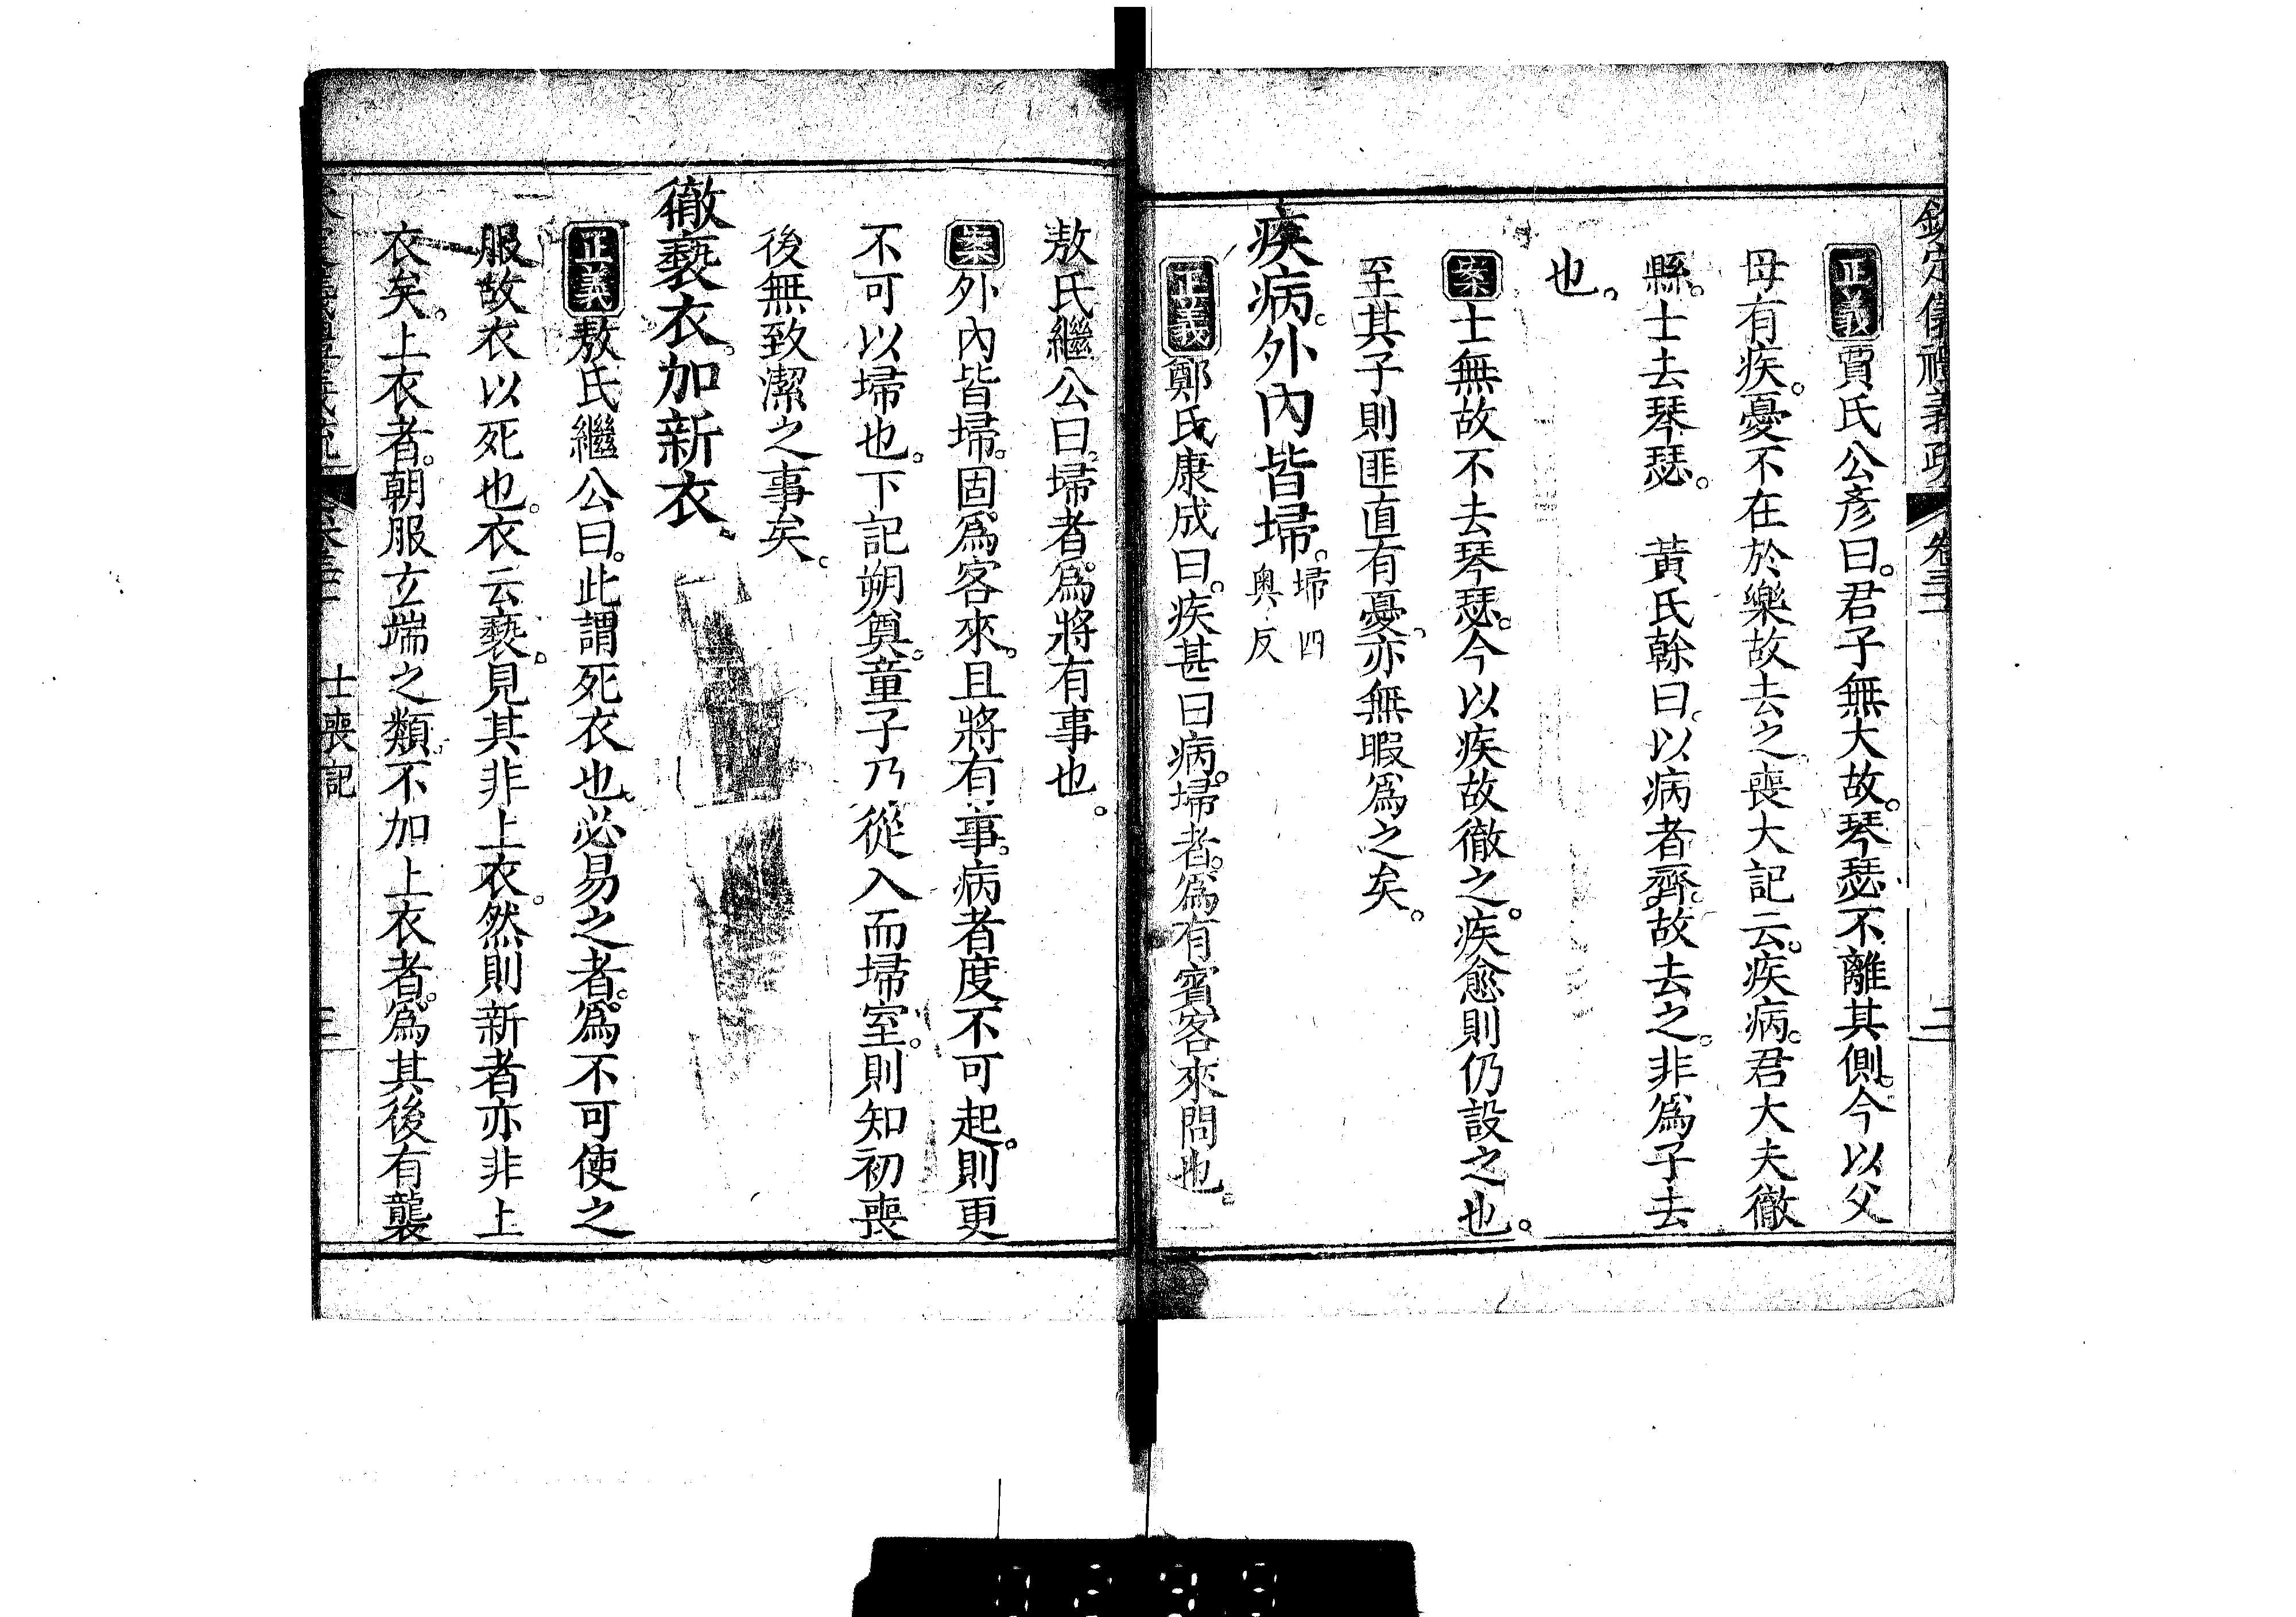 欽定儀禮義疏 卷三十一 二
正義賈氏公彥曰。君子無大故。琴瑟不離其側。今以父
母有疾。憂不在於樂故去之。喪大記云。疾病。君大夫徹
縣。士去琴瑟。 黃氏榦曰。以病者齊。故去之。非爲子去
也。
案士無故不去琴瑟。今以疾故徹之。疾愈則仍設之也。
至其子則匪直有憂。亦無暇爲之矣。
疾病。外內皆埽。埽四
奥反
正義鄭氏康成曰。疾甚曰病。埽者。爲有賓客來問也。
敖氏繼公曰。埽者。爲將有事也。
案外內皆埽。固爲客來。且將有事。病者度不可起。則更
不可以埽也。下記朔奠。童子乃從入而埽室。則知初喪
後無致潔之事矣。
徹褻衣。加新衣。
正義敖氏繼公曰。此謂死衣也。必易之者。爲不可使之
服故衣以死也。衣云褻。見其非上衣。然則新者亦非上
衣矣。上衣者。朝服玄端之類。不加上衣者。爲其後有襲
士喪記 三